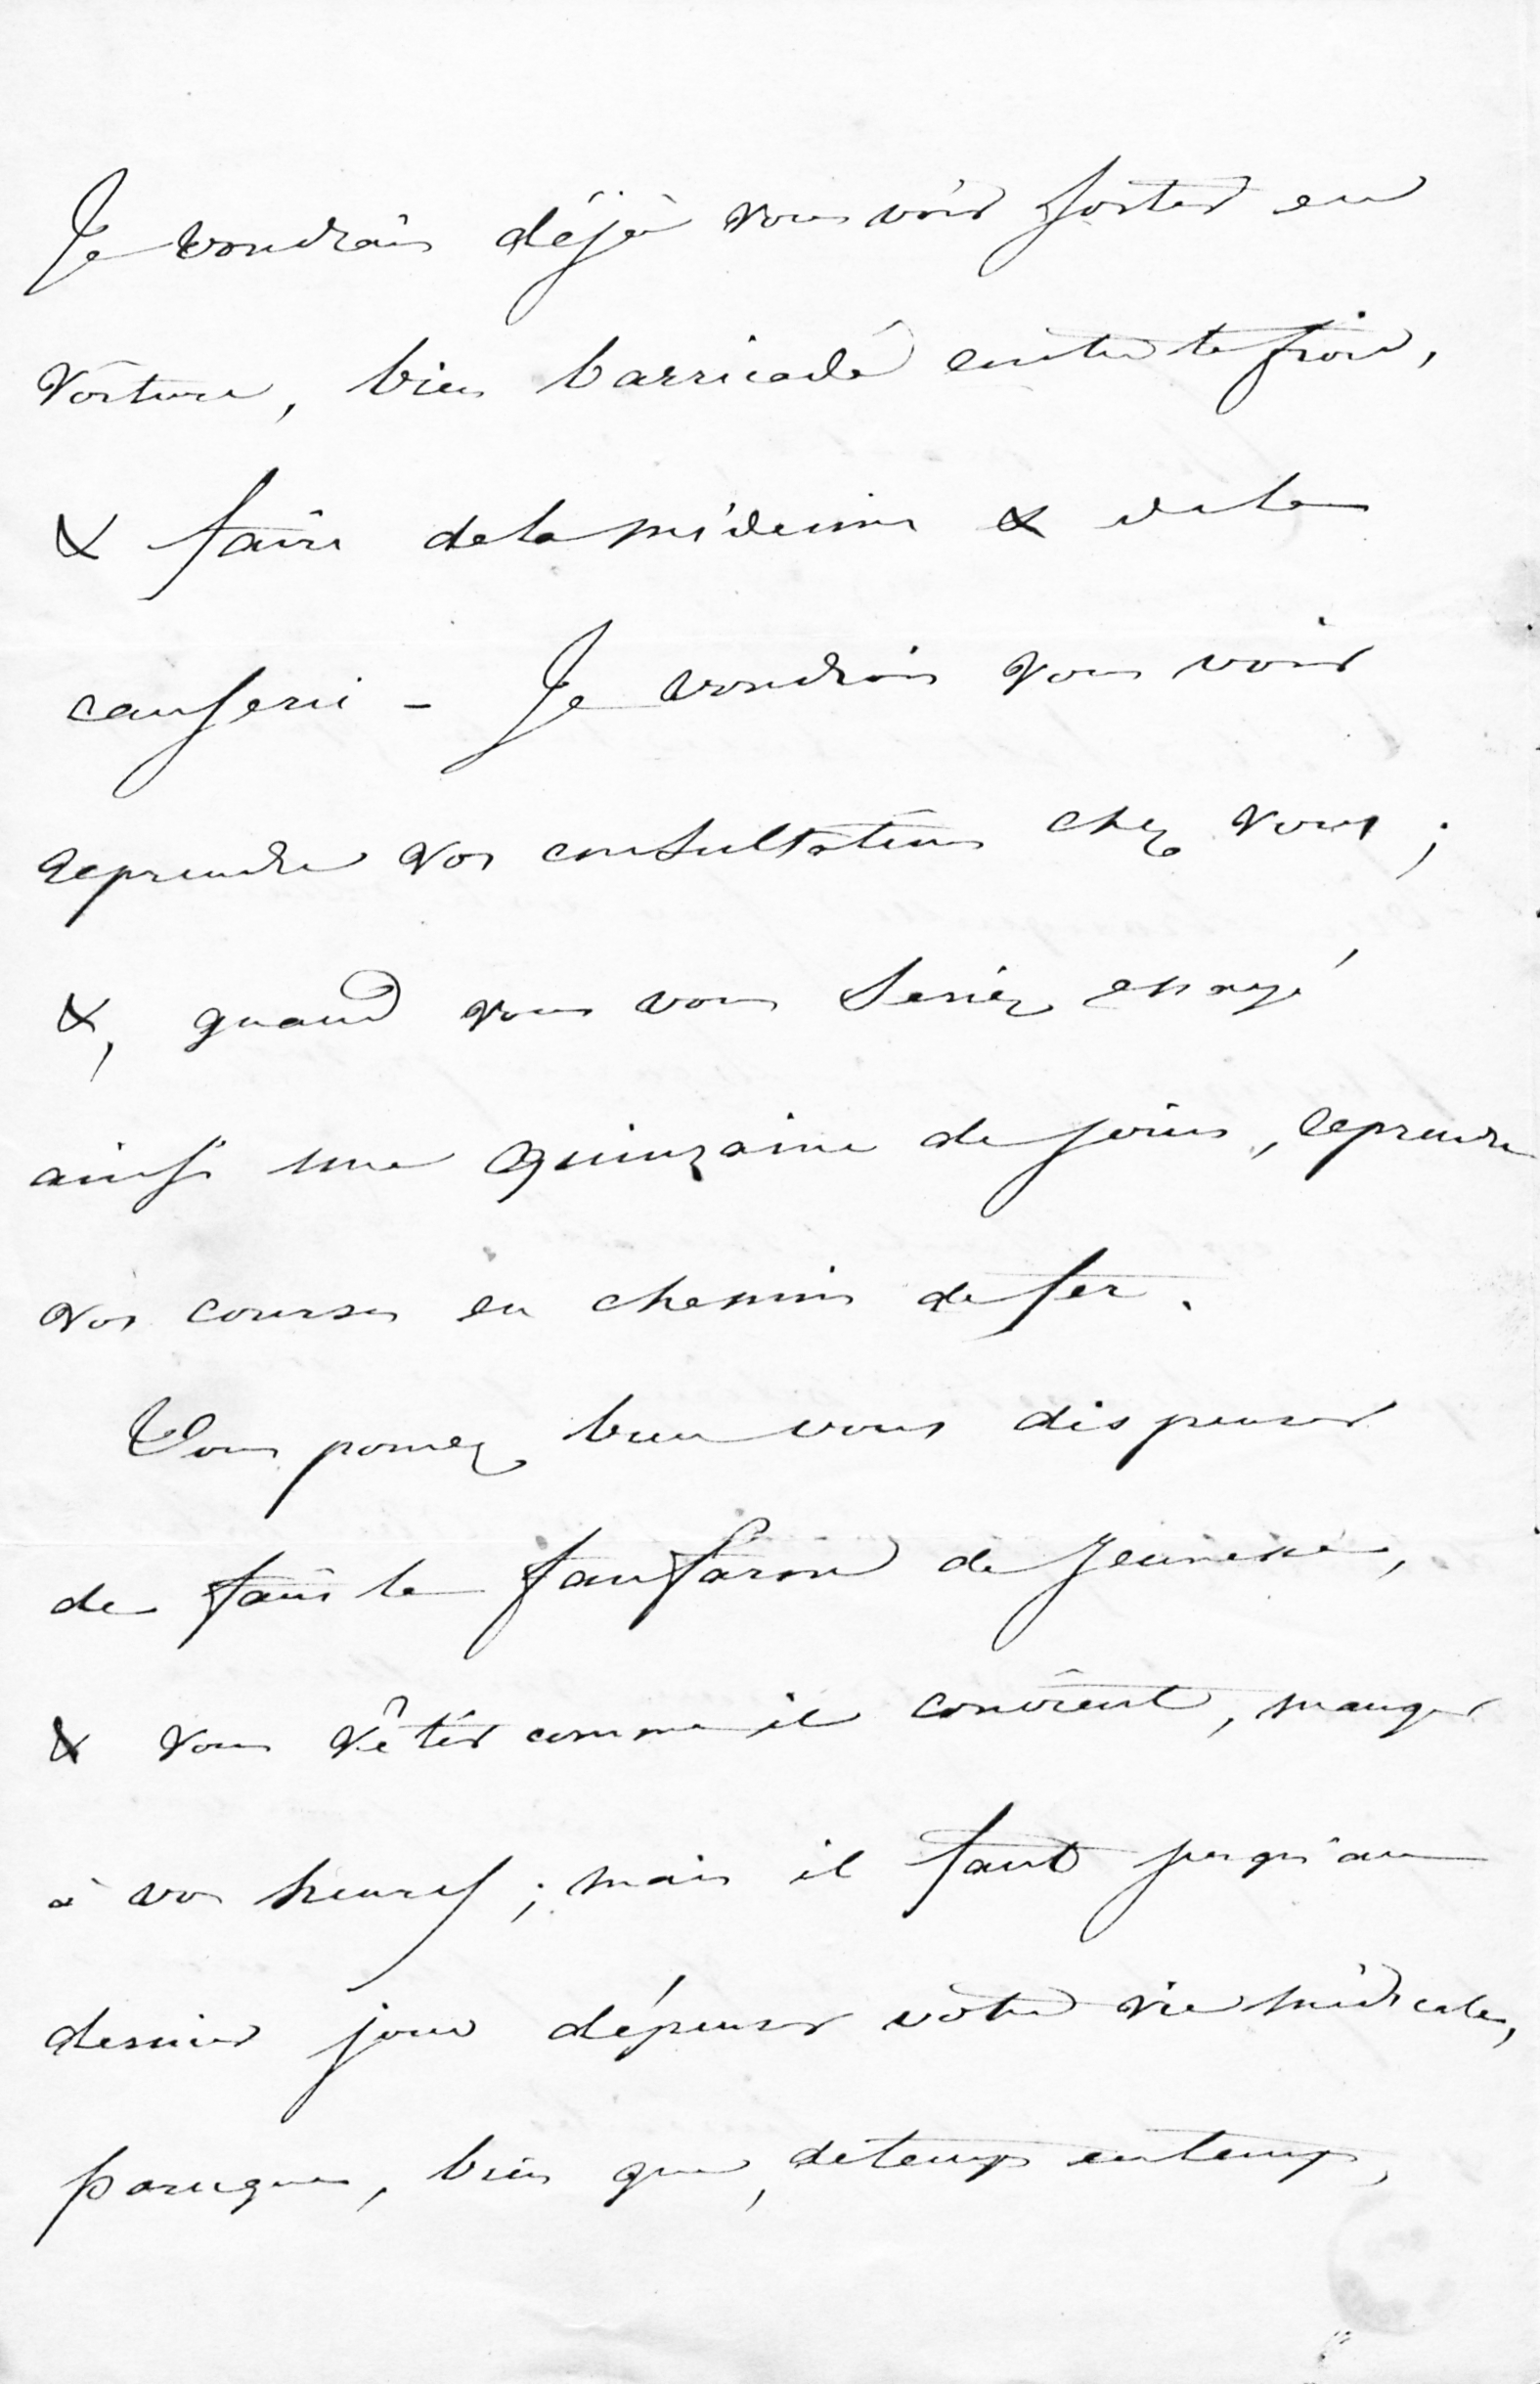 Je voudrais déjà vous voir sortir en
voiture, bien barricadé contre le froid,
& faire de la médecine & de la
causerie - Je voudrais vous voir
reprendre vos consultations chez vous ;
&, quand vous vous seriez essayé
ainsi une quinzaine de jours, reprendre
vos courses en chemin de fer.
Vous pouvez bien vous dispenser
de faire le fanfaron de jeunesse,
& vous vêtir comme il convient, manger
à vos heures ; mais il faut jusqu'au
dernier jour dépenser votre vie médicale,
parceque, bien que, de temps en temps,